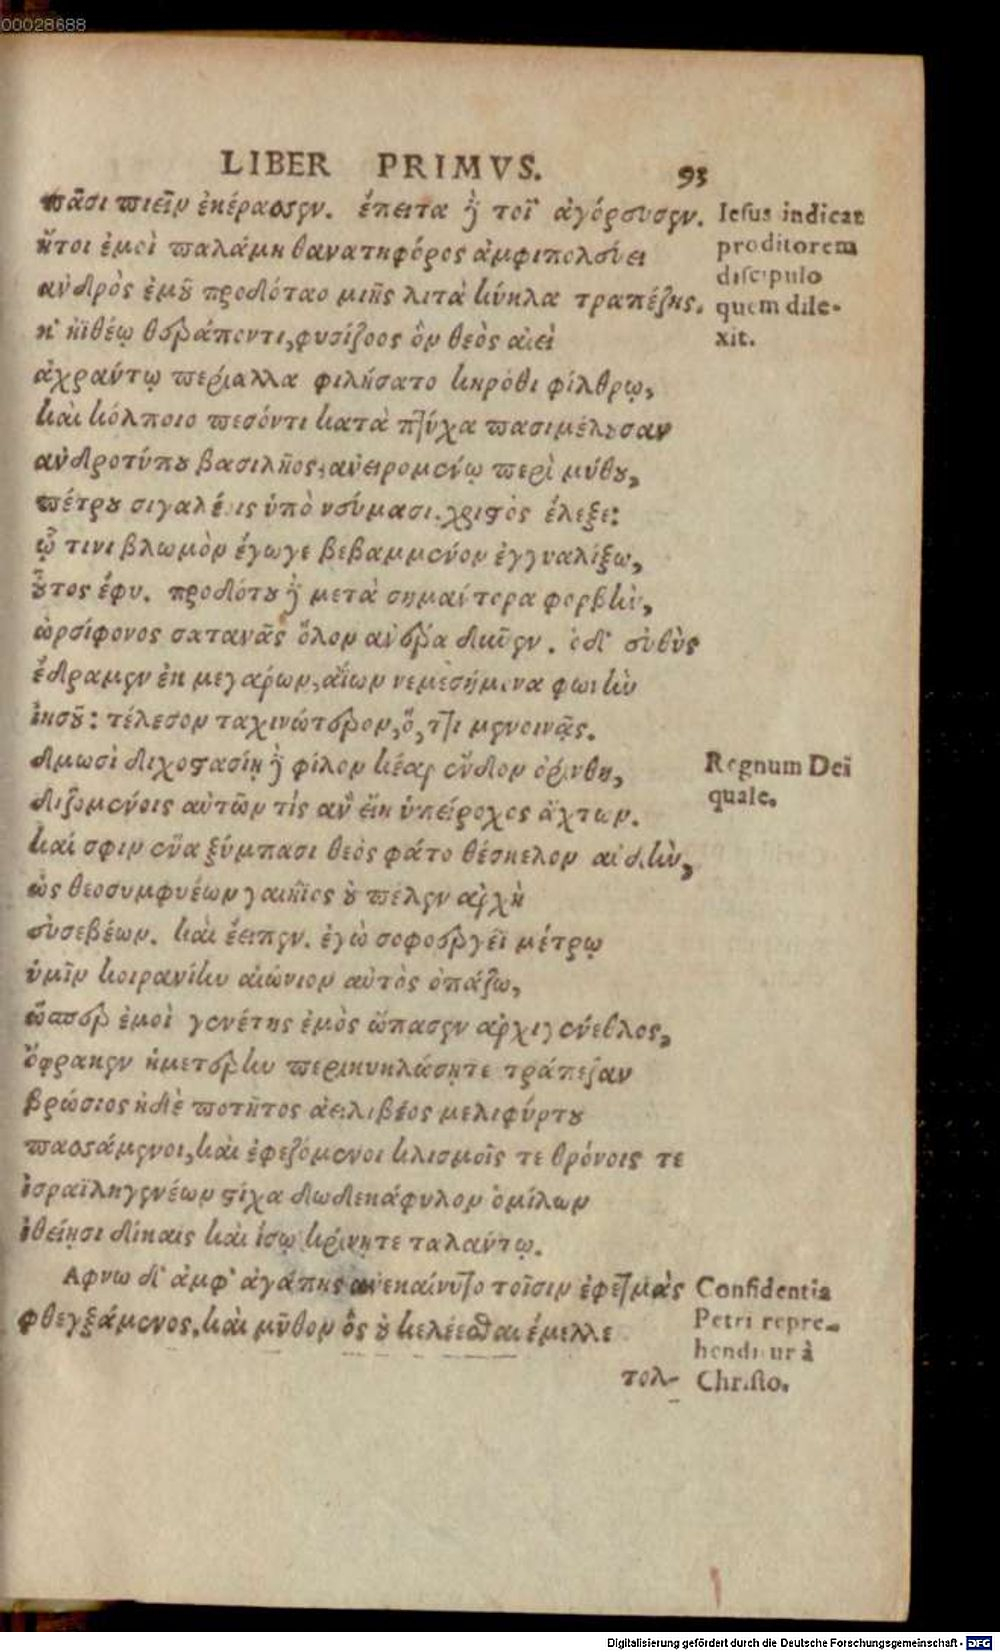 00028688
LIBER PRIMVS. 93
πᾶσι πιεῖν ἐκέρασσεν. ἔπειτα δὲ τοῖ ἀγόρευσεν.
ἤτοι ἐμοὶ παλάμη θανατηφόρος ἀμφιπολεύει
ἀνδρὸς ἐμοῦ προδόταο μιῆς λιτὰ κύκλα τραπέζης.
κ' ἠϊθέῳ θεράποντι, φυσίζοος ὃν θεὸς αἰεὶ
ἀχράντῳ περίαλλα φιλήσατο κηρόθι φίλτρῳ,
καὶ κόλποιο πεσόντι κατὰ πτύχα πασιμέλουσαν
ἀνδροτύπου βασιλῆος, ἀνειρομένῳ περὶ μύθου,
πέτρου σιγαλέοις ὑπὸ νεύμασι. χριστὸς ἔλεξε:
ᾧ τινι βλωμὸν ἔγωγε βεβαμμένον ἐγγυαλίξω,
οὗτος ἔφυ. προδότου δὲ μετὰ σημάντορα φορβὴν,
ὠρσίφονος σατανᾶς ὅλον ἀνέρα δῦσεν. ὁδ' εὐθὺς
ἔδραμεν ἐκ μεγάρων, ἀΐων νεμεσήμονα φωνὴν
ἰησοῦ: τέλεσον ταχινώτερον, ὅ, ττι μενοινᾷς.
δμωσὶ διχοστασίη δὲ φίλον κέαρ ἔνδον ὀρίνθη,
διζομένοις αὐτῶν τίς ἂν εἴη ὑπείροχος ἄκτωρ.
καί σφιν ἕνα ξύμπασι θεὸς φάτο θέσκελον αὐδὴν,
ὡς θεοσυμφυέων γαιήϊος οὐ πέλεν ἀρχὴ
εὐσεβέων. καὶ ἔειπεν. ἐγὼ σοφοεργέϊ μέτρῳ
ὑμῖν κοιρανίην αἰώνιον αὐτὸς ὀπάζω,
ὥσπερ ἐμοὶ γενέτης ἐμὸς ὤπασεν ἀρχιγένεθλος,
ὄφρα κεν ἡμετέρην περικυκλώσητε τράπεζαν
βρώσιος ἠδὲ ποτῆτος ἀειλιβέος μελιφύρτου
πασσάμενοι, καὶ ἐφεζόμενοι κλισμοῖς τε θρόνοις τε
ἰσραϊληγενέων στίχα δωδεκάφυλον ὁμίλων
ἰθείησι δίκαις καὶ ἴσῳ κρίνητε ταλάντῳ.
Αφνω δ' ἀμφ' ἀγάπης ἀνεκαίνυτο τοῖσιν ἐφετμὰς
φθεγξάμενος, καὶ μῦθον ὃς οὐ κελέεσθαι ἔμελλε
τολ-
Iesus indicat
proditorem
discipulo
quem dile-
xit.
Regnum Dei
quale.
Confidentia
Petri repre-
henditur à
Christo.
Digitalisierung gefördert durch die Deutsche Forschungsgemeinschaft - DFG